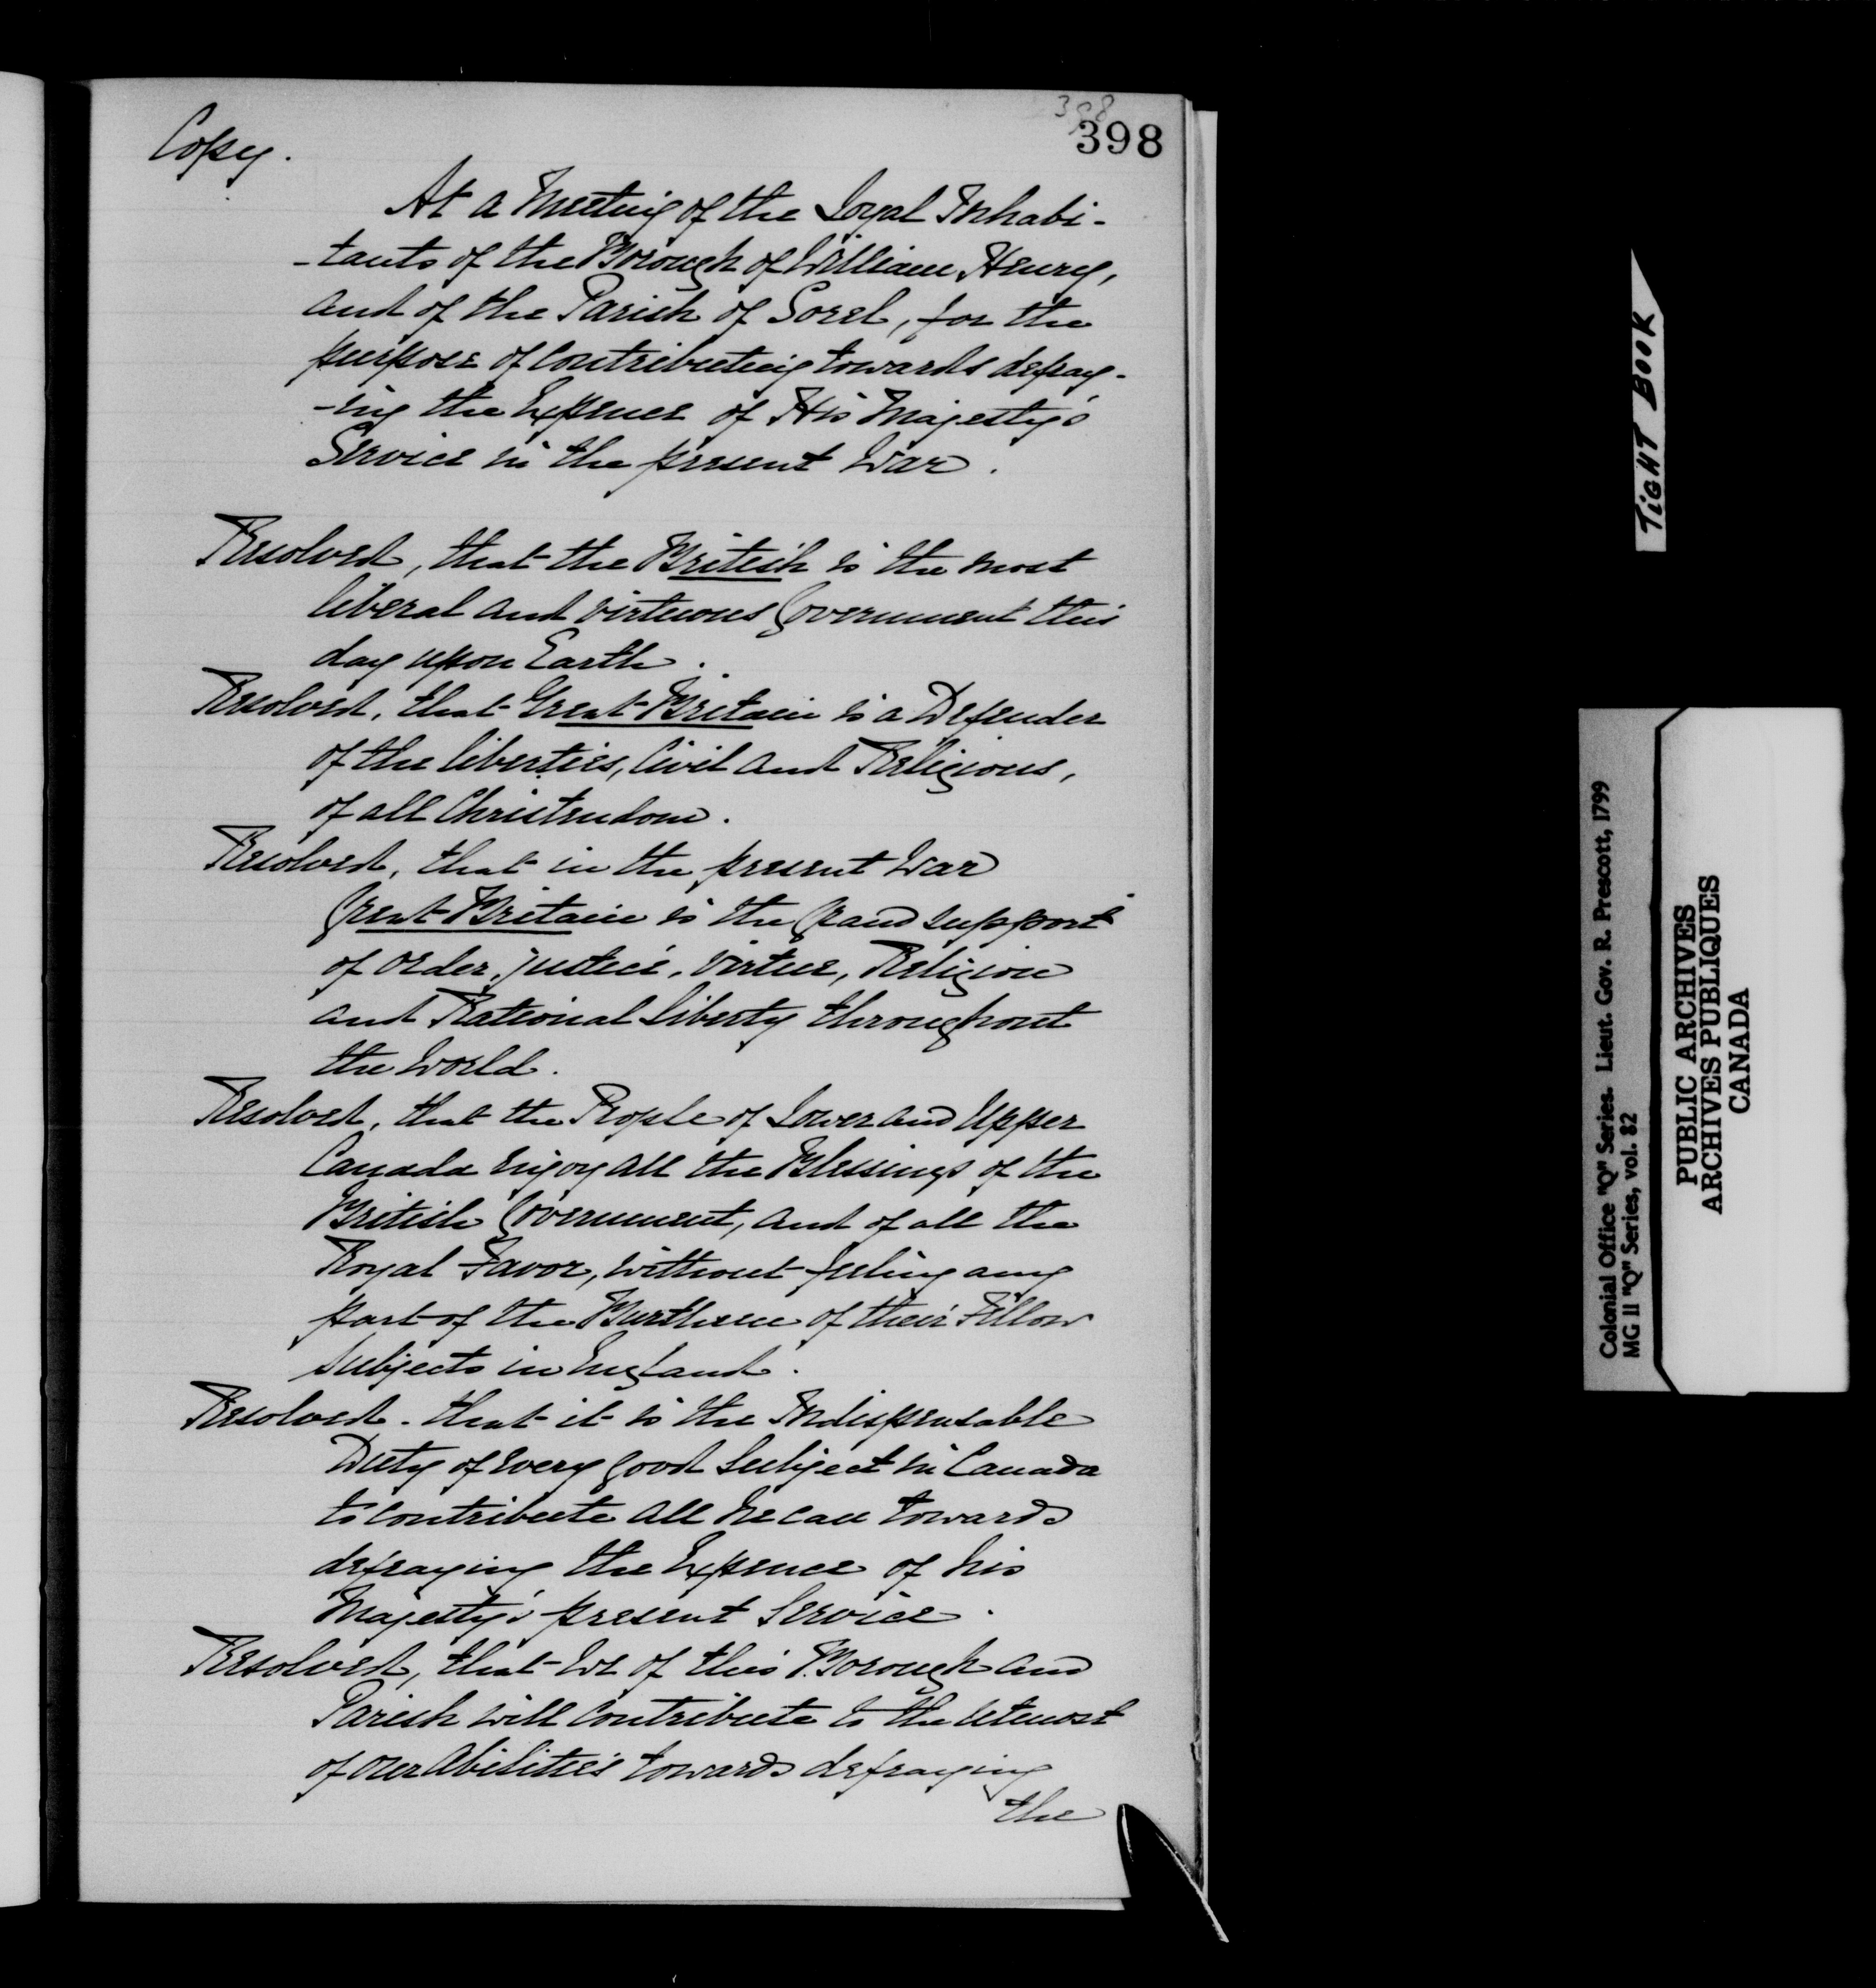 398
398
Copy.
At a Meeting of the Loyal Inhabi-
-tants of the Borough of William Henry,
and of the Parish of Sorel, for the
purpose of Contributing towards defray-
-ing the Expence of His Majesty's
Service in the present War.
Resolved, that the British is the most
liberal and virtuous Government this
day upon Earth.
Resolved, that Great Britain is a Defender
of the liberties, Civil and Religious,
of all Christendom.
Resolved, that in the present War
Great Britain is the Grand support
of order, justice, virtue, Religion
and Rational Liberty throughout
the World.
Resolved, that the People of Lower and Upper
Canada enjoy all the Blessings of the
British Government, and of all the
Royal Favor, without feeling any
part of the Burthen of their Fellow
Subjects in England.
Resolved. that it is the Indispensable
Duty of every good Subject in Canada
to contribute all he can towards
defraying the Expence of his
Majesty's present Service.
Resolved, that We of this Borough and
Parish will Contribute to the utmost
of our Abilities towards defraying
the
TIGHT BOOK
Colonial Office "Q" Series. Lieut. Gov. R. Prescott, 1799
MG 11 "Q" Series, vol. 82
PUBLIC ARCHIVES
ARCHIVES PUBLIQUES
CANADA